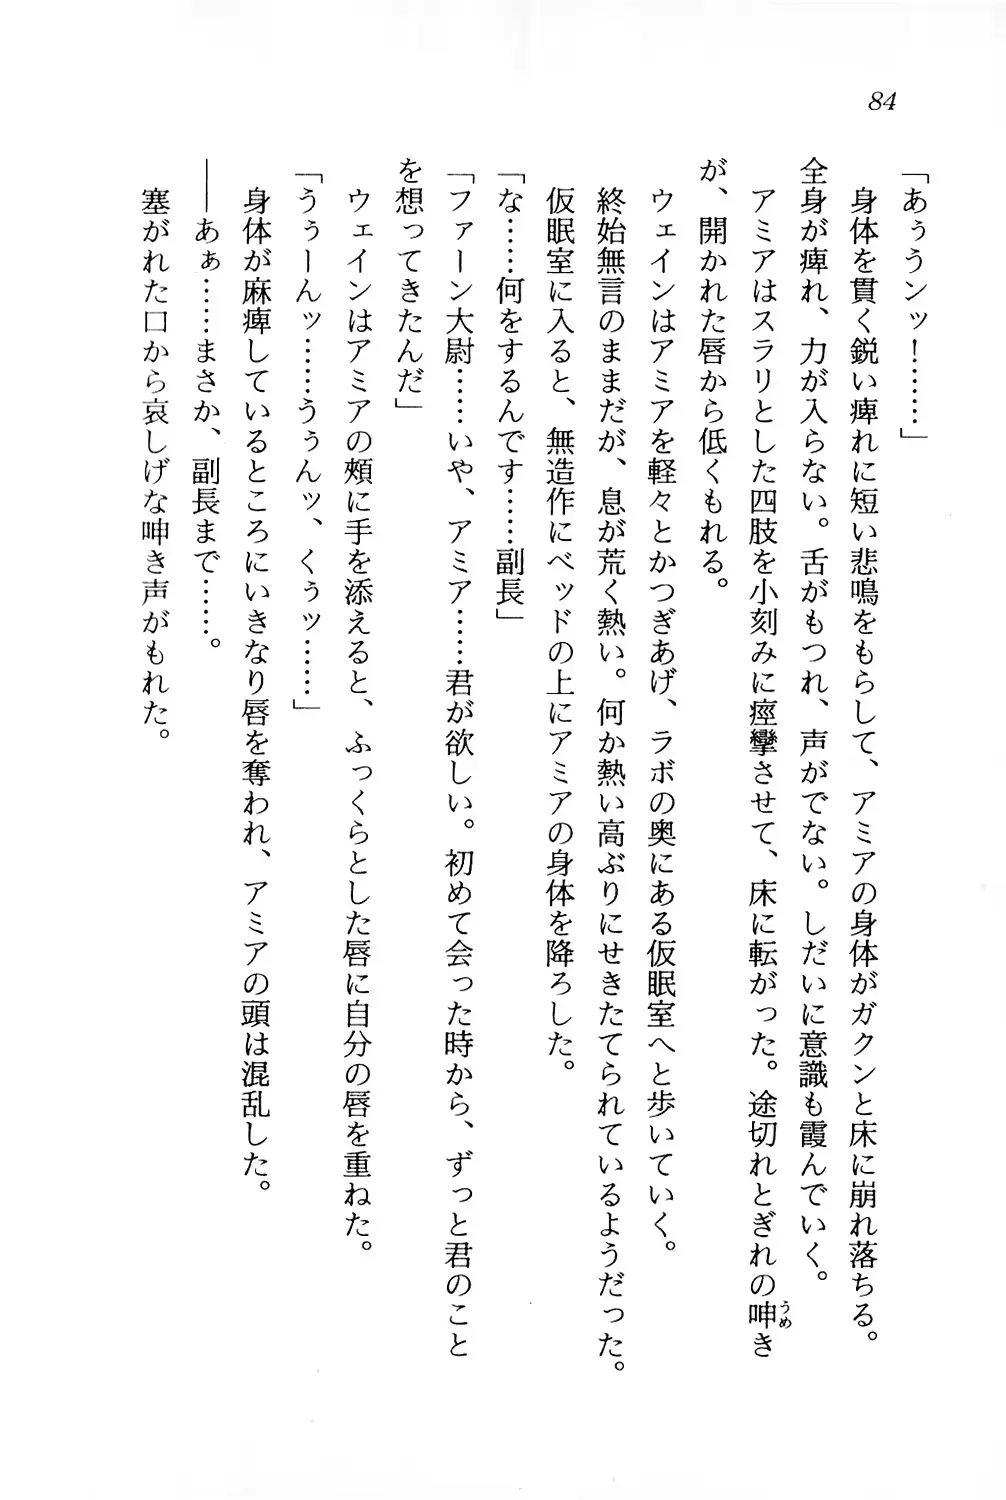 84
「あぅうンッ！……」
身体を貫く鋭い痺れに短い悲鳴をもらして、アミアの身体がガクンと床に崩れ落ちる。
全身が痺れ、力が入らない。舌がもつれ、声がでない。しだいに意識も霞んでいく。
アミアはスラリとした四肢を小刻みに痙攣させて、床に転がった。途切れとぎれの呻き
うめ
が、開かれた唇から低くもれる。
ウェインはアミアを軽々とかつぎあげ、ラボの奥にある仮眠室へと歩いていく。
終始無言のままだが、息が荒く熱い。何か熱い高ぶりにせきたてられているようだった。
仮眠室に入ると、無造作にベッドの上にアミアの身体を降ろした。
「な……何をするんです……副長」
「ファーン大尉……いや、アミア……君が欲しい。初めて会った時から、ずっと君のこと
を想ってきたんだ」
ウェインはアミアの頰に手を添えると、ふっくらとした唇に自分の唇を重ねた。
「うぅーんッ……うぅんッ、くぅッ……」
身体が麻痺しているところにいきなり唇を奪われ、アミアの頭は混乱した。
――あぁ……まさか、副長まで……。
塞がれた口から哀しげな呻き声がもれた。